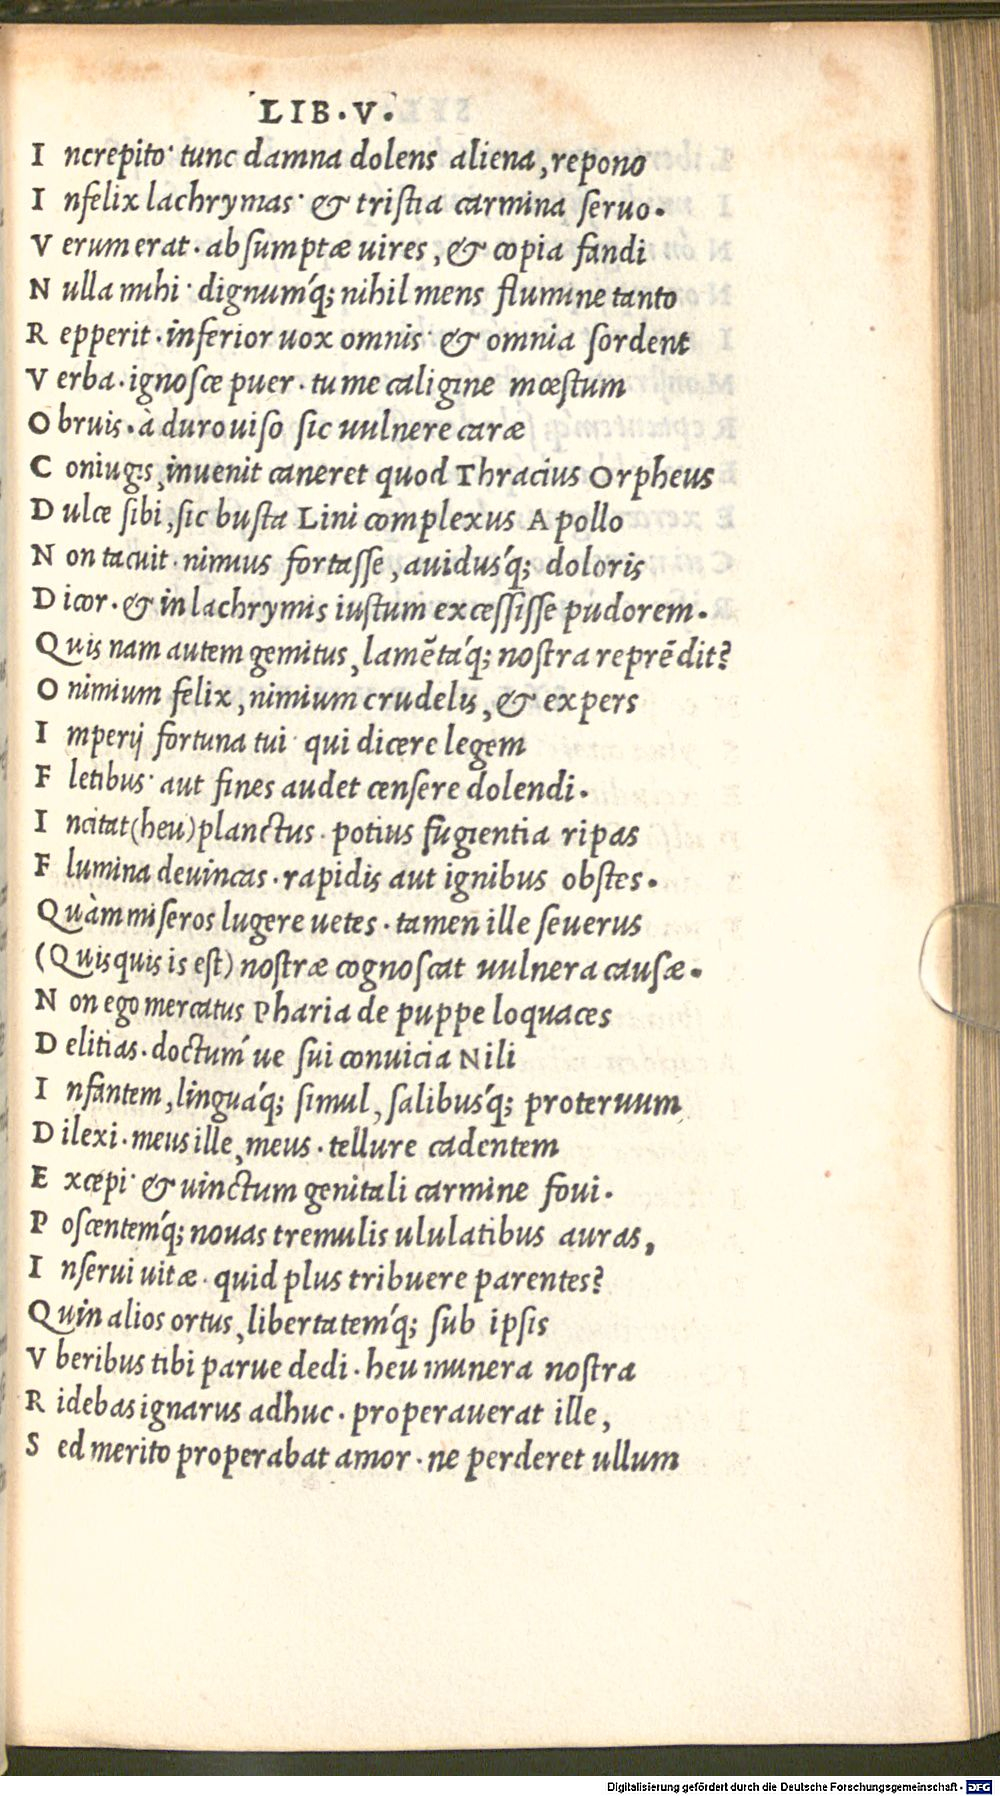 LIB.V.
I ncrepito· tunc damna dolens aliena, repono
I nfelix lachrymas· & tristia carmina seruo.
V erum erat. absumptæ uires, & copia fandi
N ulla mihi· dignum'q; nihil mens flumine tanto
R epperit. inferior uox omnis· & omnia sordent
V erba. ignosce puer. tu me caligine mœstum
O bruis. à duro uiso sic uulnere caræ
C oniugis, inuenit caneret quod Thracius Orpheus
D ulce sibi, sic busta Lini complexus Apollo
N on tacuit. nimius fortasse, auidus'q; doloris
D icor. & in lachrymis iustum excessisse pudorem.
Quis nam autem gemitus, lamẽta'q; nostra reprẽdit?
O nimium felix, nimium crudelis, & expers
I mperij fortuna tui· qui dicere legem
F letibus· aut fines audet censere dolendi.
I ncitat (heu) planctus. potius fugientia ripas
F lumina deuincas. rapidis aut ignibus obstes.
Quàm miseros lugere uetes. tamen ille seuerus
(Quisquis is est) nostræ cognoscat uulnera causæ.
N on ego mercatus Pharia de puppe loquaces
D elitias. doctum ue sui conuicia Nili
I nfantem, lingua'q; simul, salibus'q; proteruum
D ilexi. meus ille, meus. tellure cadentem
E xcepi· & uinctum genitali carmine foui.
P oscentem'q; nouas tremulis ululatibus auras,
I nserui uitæ. quid plus tribuere parentes?
Quin alios ortus, libertatem'q; sub ipsis
V beribus tibi parue dedi. heu munera nostra
R idebas ignarus adhuc. properauerat ille,
S ed merito properabat amor. ne perderet ullum
Digitalisierung gefördert durch die Deutsche Forschungsgemeinschaft - DFG